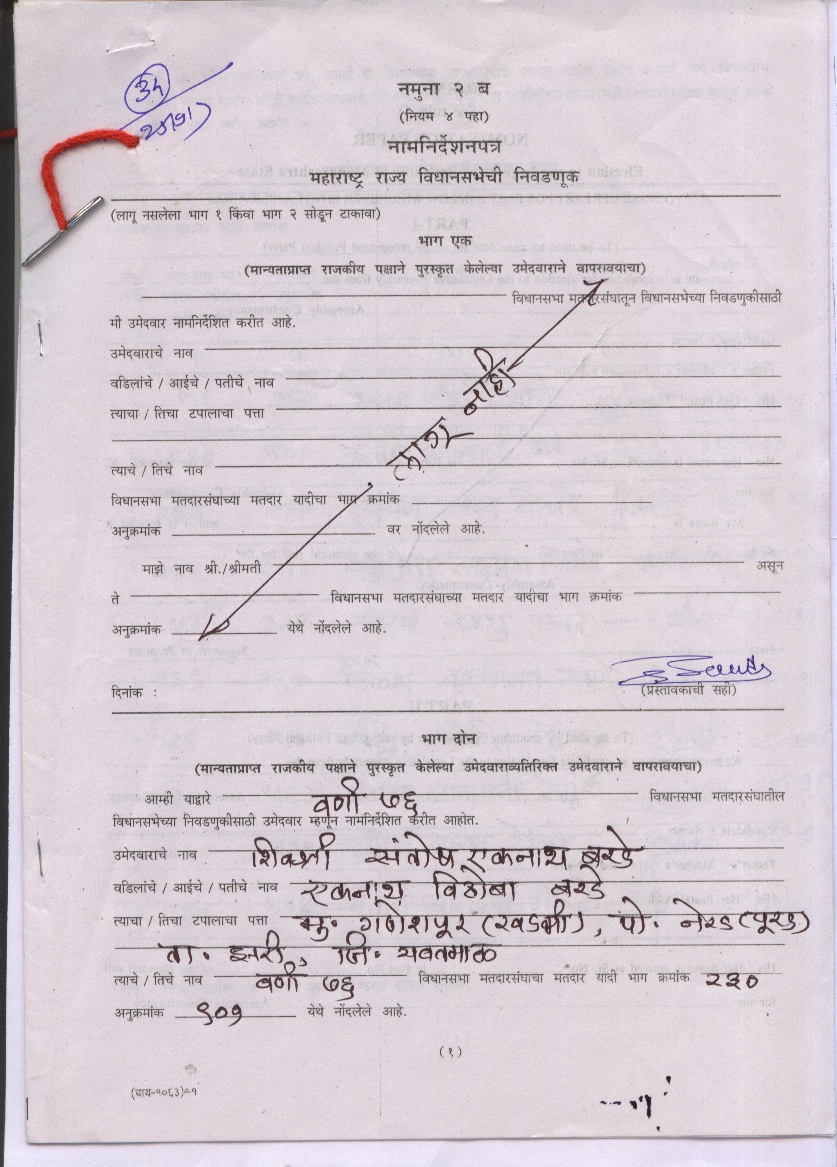 नमुना २ ब
(नियम ४ पहा)
नामनिर्देशनपत्र
महाराष्ट्र राज्य विधानसभेची निवडणूक
(लागू नसलेला भाग १ किंवा भाग २ सोडून टाकावा)
भाग एक
(मान्यताप्राप्त राजकीय पक्षाने पुरस्कृत केलेल्या उमेदवाराने वापरावयाचा)
विधानसभा मतदारसंघातून विधानसभेच्या निवडणुकीसाठी
मी उमेदवार नामनिर्देशित करीत आहे.
उमेदवाराचे नाव
वडिलांचे / आईचे / पतीचे नाव
त्याचा / तिचा टपालाचा पत्ता
लागू नाही
त्याचे / तिचे नाव
विधानसभा मतदारसंघाच्या मतदार यादीचा भाग क्रमांक
अनुक्रमांक वर नोंदलेले आहे.
माझे नाव श्री./श्रीमती असून
ते विधानसभा मतदारसंघाच्या मतदार यादीचा भाग क्रमांक
अनुक्रमांक येथे नोंदलेले आहे.
दिनांक : (प्रस्तावकाची सही)
भाग दोन
(मान्यताप्राप्त राजकीय पक्षाने पुरस्कृत केलेल्या उमेदवाराव्यतिरिक्त उमेदवाराने वापरावयाचा)
आम्ही याद्वारे वणी ७६ विधानसभा मतदारसंघातील
विधानसभेच्या निवडणुकीसाठी उमेदवार म्हणून नामनिर्देशित करीत आहोत.
उमेदवाराचे नाव संतोष एकनाथ बरडे
वडिलांचे / आईचे / पतीचे नाव एकनाथ विठोबा बरडे
त्याचा / तिचा टपालाचा पत्ता मु. गणेशपूर (खडकी), पो. नेरड (पूरड)
ता. झरी, जि. यवतमाळ
त्याचे / तिचे नाव वणी ७६ विधानसभा मतदारसंघाचा मतदार यादी भाग क्रमांक २३०
अनुक्रमांक ९०१ येथे नोंदलेले आहे.
(१)
(याय-१०६३)-१